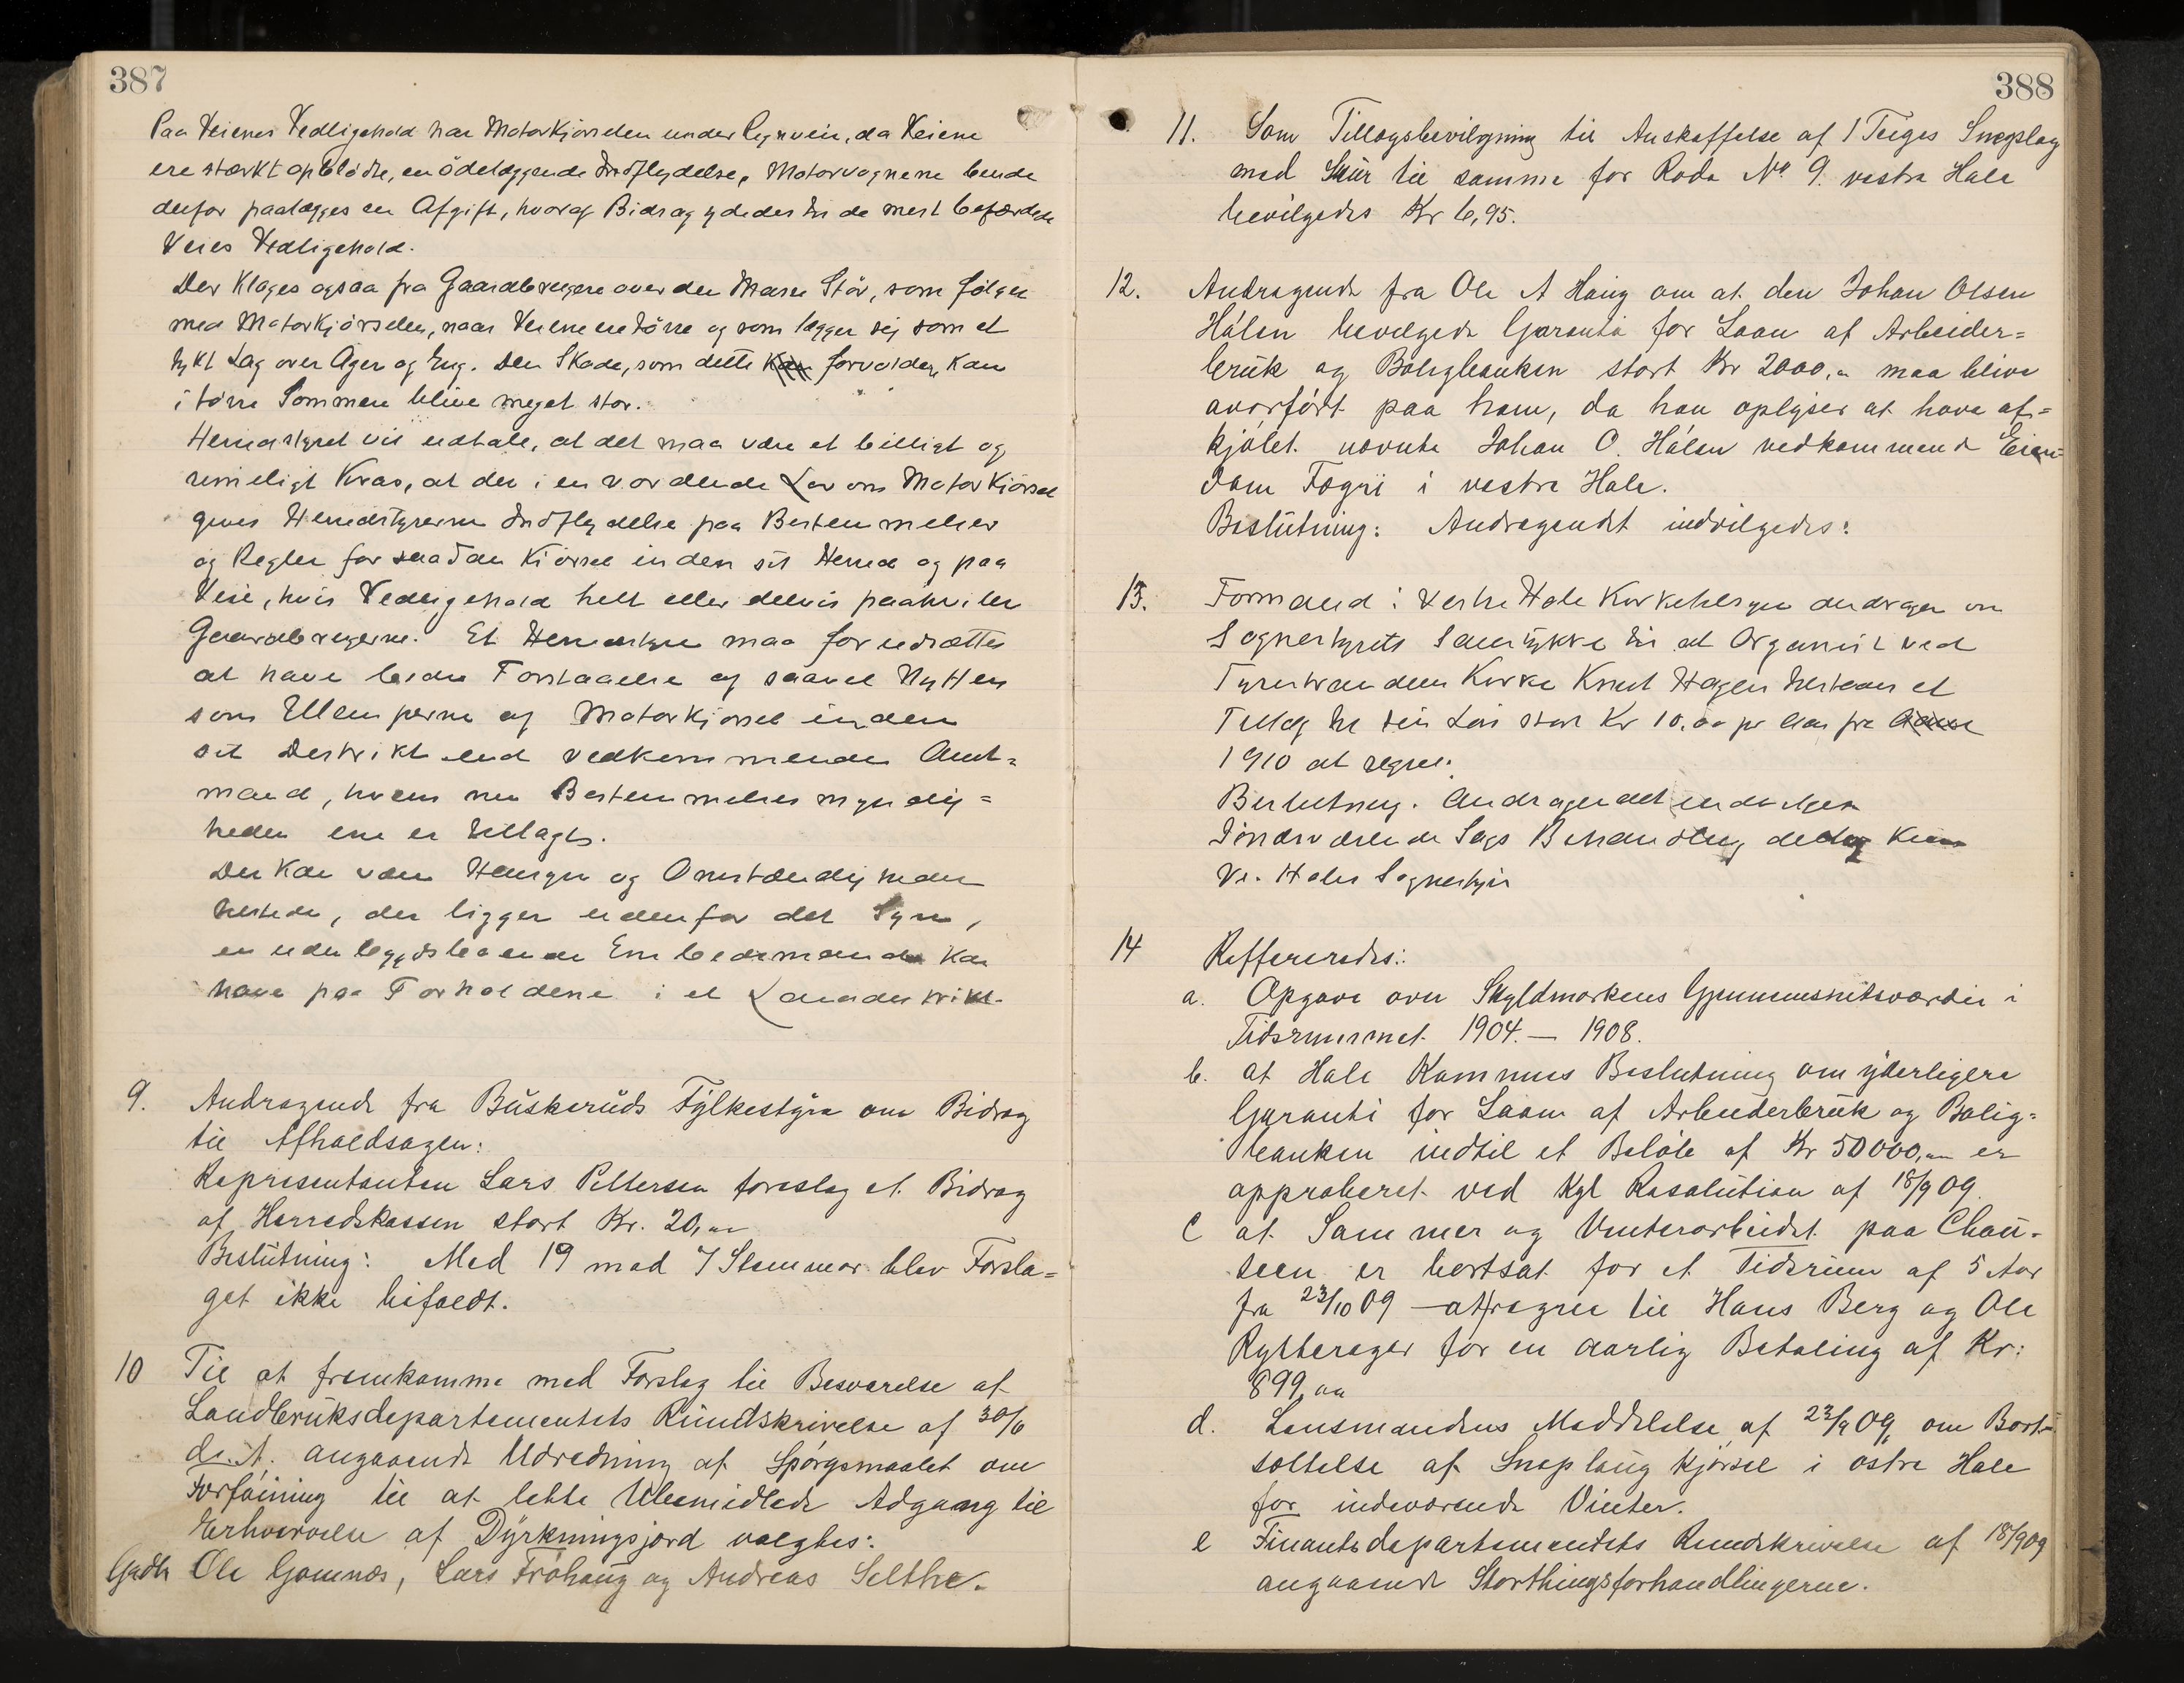 387
Paa Veienes Vedligehold har Motorkjørselen under Regnveir, da Veiene
ere stærkt opblødte, en ødelæggende Indflydelse. Motorvognene burde
derfor paalægges en Afgift, hvoraf Bidrag ydedes til de mest befærdede
Veies Vedligehold.
Der klages ogsaa fra Gaardbrugere over den Masse Støv, som følger
med Motorkjørselen, naar Veiene ere tørre og som lægger sig som et
tykt Lag over Ager og Eng. Den Skade, som dette forvolder, kan
i tørre Sommere blive meget stor.
Herredstyret vil udtale, at det maa være et billigt og
rimeligt Krav, at der i en vordende Lov om Motorkjørsel
gives Herredstyrerne Indflydelse paa Bestemmelser
og Regler for saadan Kjørsel inden sit Herred og paa
Veie, hvis Vedligehold helt eller delvis paahviler
Gaardbrugerne. Et Herredstyre maa forudsættes
at have bedre Forstaaelse af saavel Nytten
som Ulemperne af Motorkjørsel inden
sit Distrikt end vedkommende Amt=
mand, hvem nu Bestemmelsesmyndig=
heden ene er tillagt.
Der kan være Hensyn og Omstændigheder
tilstede, der ligger udenfor det Syn,
en udenbygdsboende Embedsmand kan
have paa Forholdene i et Landdistrikt.
9. Andragende fra Buskeruds Fylkestyre om Bidrag
til Afholdsagen:
Representanten Lars Pettersen foreslog et Bidrag
af Herredskassen stort Kr. 20,00
Beslutning: Med 19 mod 7 Stemmer blev Forsla=
get ikke bifaldt.
10 Til at fremkomme med Forslag til Besvarelse af
Landbruksdepartementets Rundskrivelse af 30/6
d. A. angaaende Udredning af Spørgsmaalet om
Forføining til at lette Ubemidlede Adgang til
Erhvervelse af Dyrkningsjord valgtes:
Gdbr Ole Gomnæs, Lars Frøhaug og Andreas Selthe.
388
11. Som Tillægsbevilgning til Anskaffelse af 1 Sneplog
med Skur til samme for Rode No 9. vestre Hole
bevilgedes Kr 6,95.
12. Andragende fra Ole A Haug om at den Johan Olsen
Hálen bevilgede Garanti for Laan af Arbeider=
bruk og Boligbanken stort Kr 2000,00 maa blive
overført paa ham, da han oplyser at have af=
kjøbt nævnte Johan O. Hálen vedkommende Eien=
dom Fægri i vestre Hole.
Beslutning: Andragendet indvilgedes:
13. Formand i Vestre Hole Kirketilsyn andrager om
Sognestyrets Samtykke til at Organist ved
Tyristrandens Kirke Knut Hagen tilstaaes et
Tillæg til sin Løn stort Kr 10,00 pr Aar fra
1910 at regne:
Beslutning. Andragendet indvilges
I nærværende Sags Behandling deltog kun
Ve. Holes Sognestyre
14 Reffereredes:
a. Opgave over Skyldmarkens Gjennemsnitsværdie i
Tidsrummet 1904. — 1908.
b. at Hole Kommunes Beslutning om yderligere
Garanti for Laan af Arbeiderbruk og Bolig=
banken indtil et Beløb af Kr 50000,00 er
approberet ved Kgl Resolution af 18/9 09.
c at Sommer og Vinterarbeidet paa Chau=
seen er bortsat for et Tidsrum af 5 Aar
fra 23/10 09 — at regne til Hans Berg og Ole
Rytterager for en aarlig Betaling af Kr:
899,00
d. Lensmandens Meddelelse af 23/9 09, om Bort=
sættelse af Sneplougkjørsel i østre Hole
for indeværende Vinter.
e Finantsdepartementets Rundskrivelse af 18/9 09
angaaende Storthingsforhandlingerne.